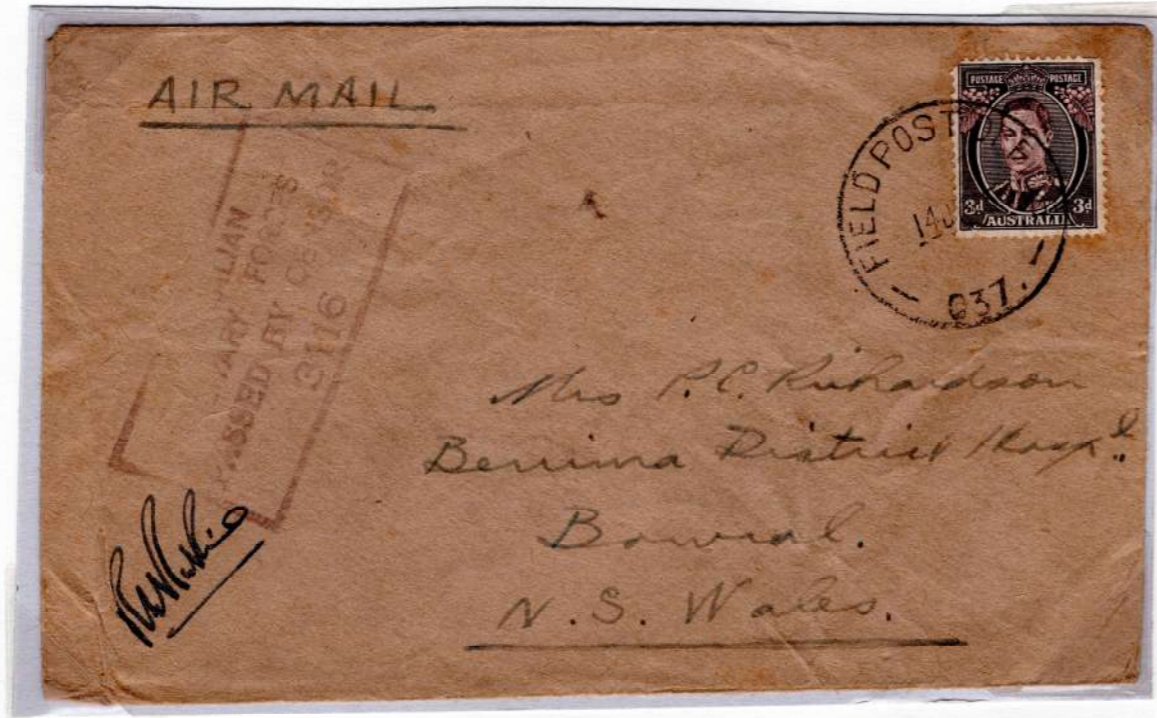 AIR MAIL
POSTAGE POSTAGE
3d 3d
AUSTRALIA
FIELD POST
14
037.
PASSED BY
3116
Mrs R.C. Richardson
Berrima District Hospl.
Bowral.
N. S. Wales.